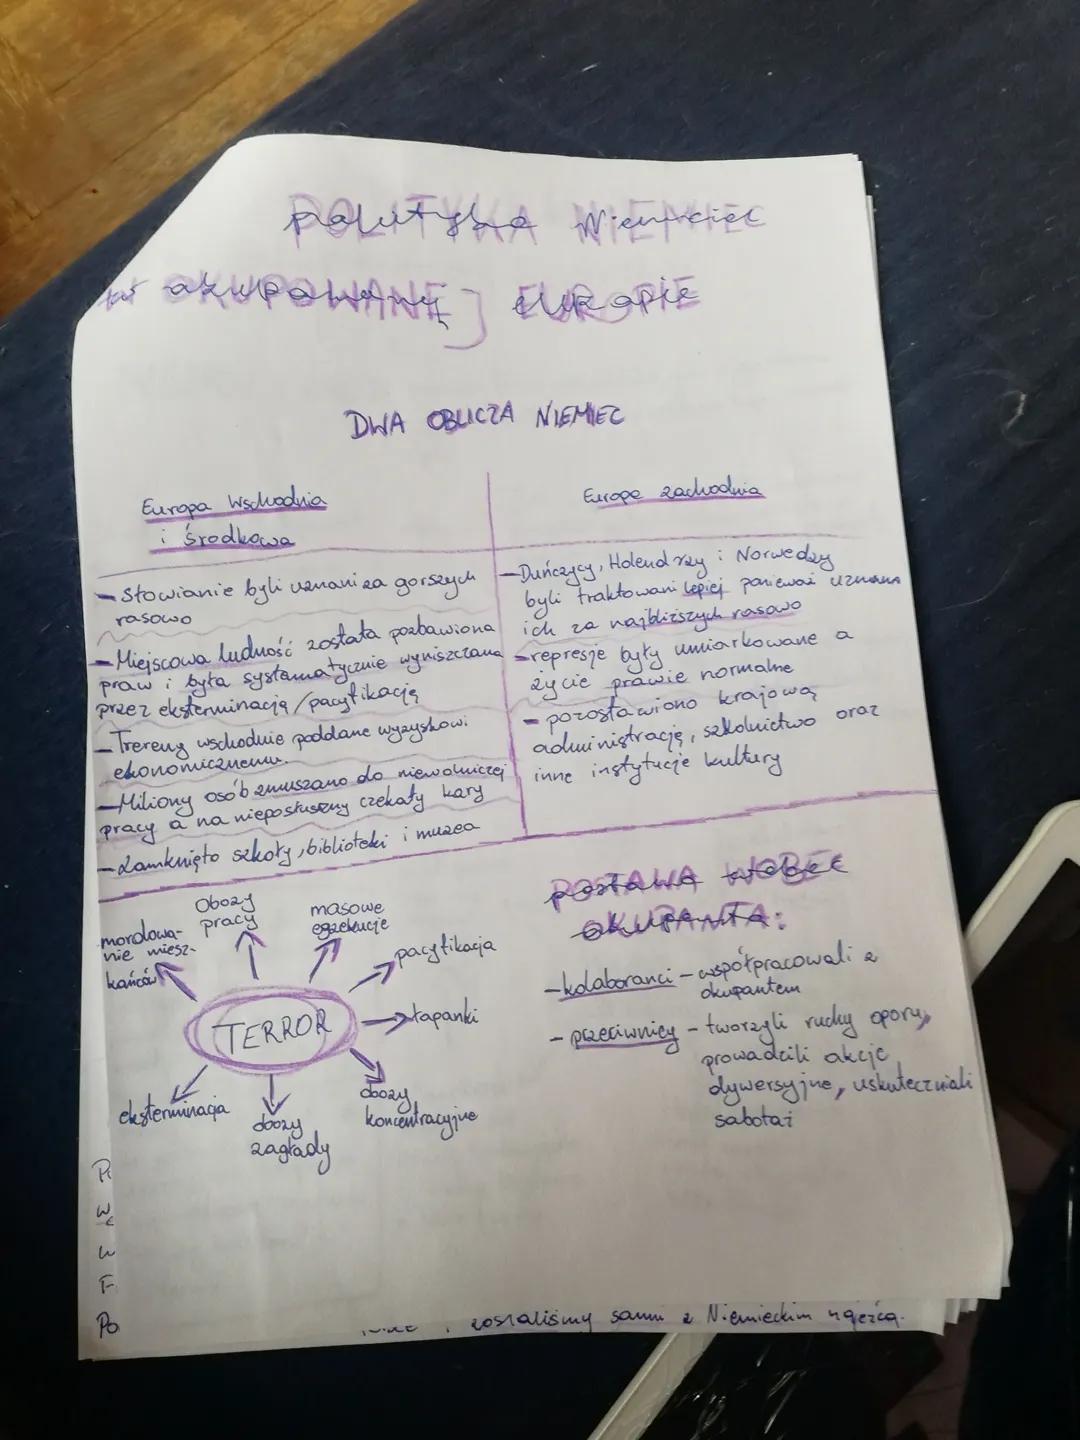 POLITYKA NIEMIEC
w OKUPOWANEJ EUROPIE
DWA OBLICZA NIEMIEC
Europa Wschodnia
i środkowa
- Słowianie byli uznani za gorszych
rasowo
- Miejscowa ludność została pozbawiona
praw i była systematycznie wyniszczana
przez eksterminację/pacyfikację
- Trereny wschodnie poddane wyzyskowi
ekonomicznemu.
- Miliony osób zmuszano do niewolniczej
pracy a na nieposłuszny czekały kary
- Zamknięto szkoły, biblioteki i muzea
Europa zachodnia
- Duńczycy, Holendrzy i Norwedzy
byli traktowani lepiej ponieważ uznano
ich za najbliższych rasowo
- represje były umiarkowane a
życie prawie normalne
- pozostawiono krajową
administrację, szkolnictwo oraz
inne instytucje kultury
TERROR
mordowa-
nie miesz-
kańców
Obozy
pracy
masowe
egzekucje
pacyfikacja
łapanki
obozy
koncentracyjne
obozy
zagłady
eksterminacja
POSTAWA WOBEC
OKUPANTA:
- kolaboranci - współpracowali z
okupantem
- przeciwnicy - tworzyli ruchy oporu,
prowadzili akcje
dywersyjne, uskuteczniali
sabotaż
W
F
Po
zostaliśmy sami z Niemieckim